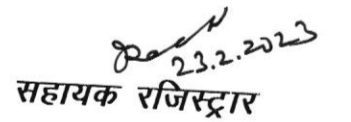 23.2.2023
सहायक रजिस्ट्रार